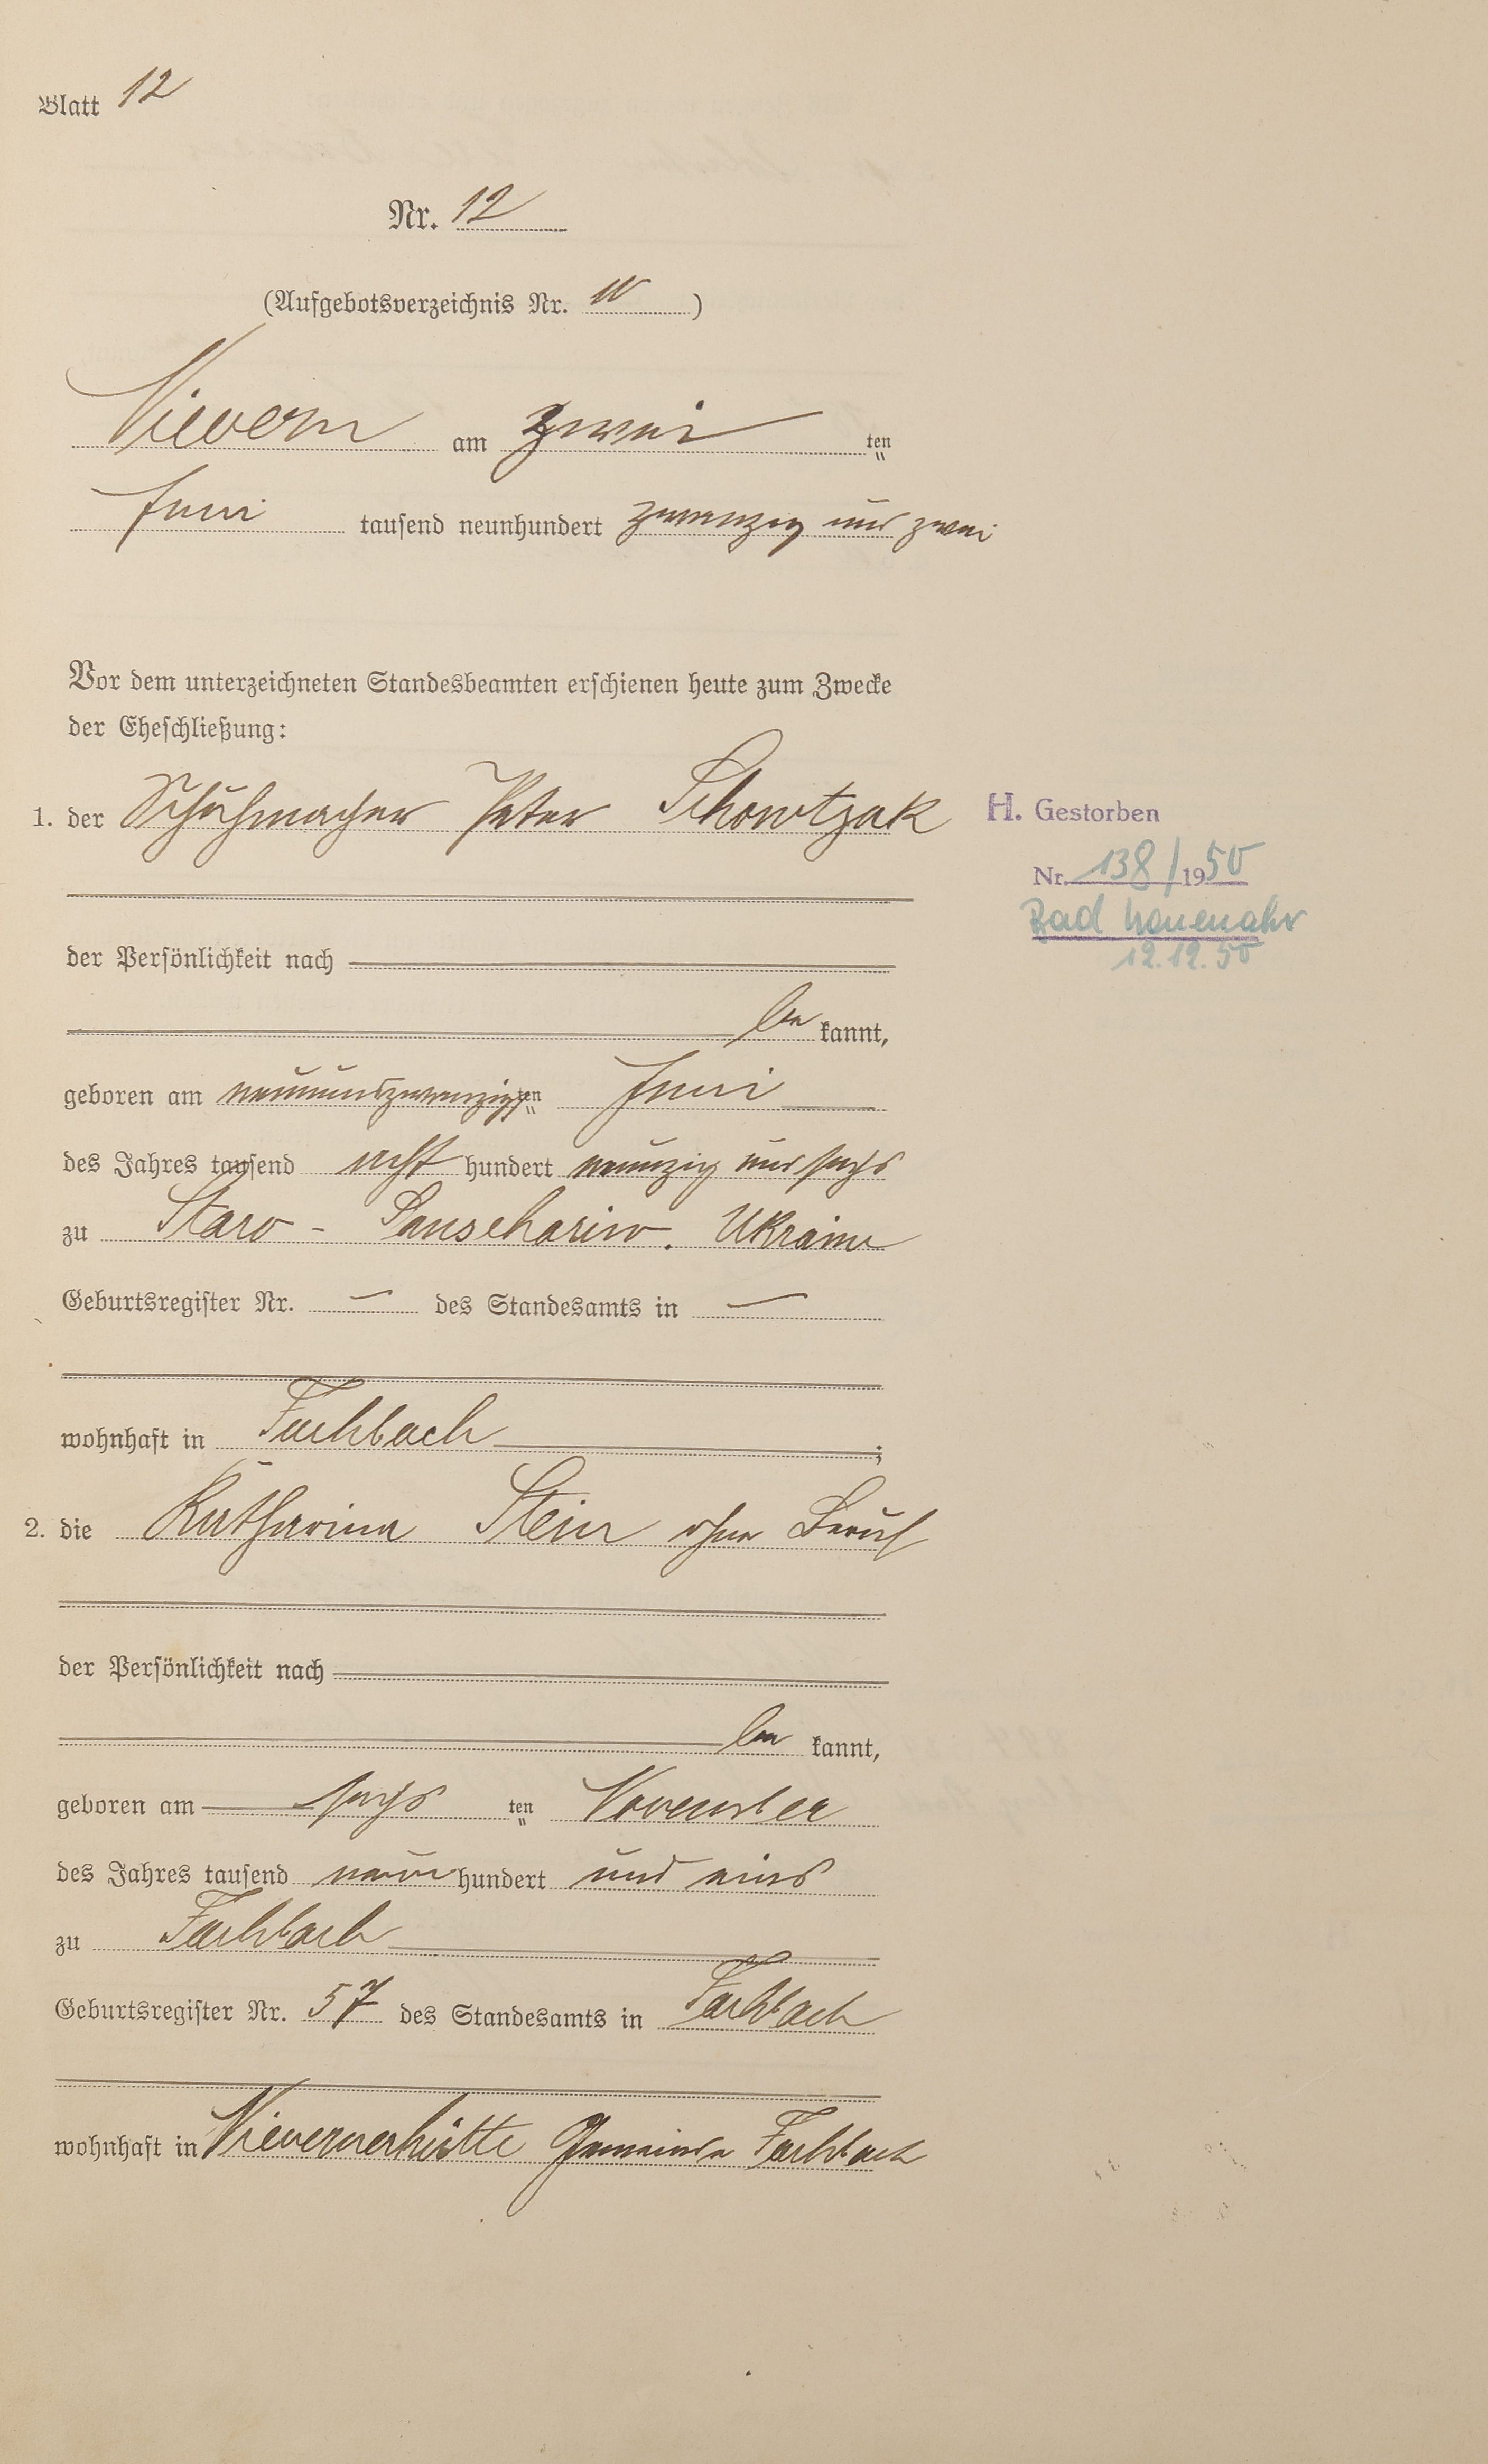 Blatt 12
Nr. 12
(Aufgebotsverzeichnis Nr. 10)
Nievern am zwei ten
Juni tausend neunhundert zwanzig und zwei
Vor dem unterzeichneten Standesbeamten erschienen heute zum Zwecke
der Eheschließung:
1. der Schuhmacher Peter Schowtzak
H. Gestorben
Nr. 138/1950
Bad Neuenahr
12.12.50
der Persönlichkeit nach
be kannt,
geboren am neunundzwanzigsten Juni
des Jahres tausend acht hundert neunzig und sechs
zu Staro - Ukraine
Geburtsregister Nr. — des Standesamts in —
wohnhaft in Fachbach ;
2. die Katharina Stein ohne Beruf
der Persönlichkeit nach
be kannt,
geboren am sechs ten November
des Jahres tausend neun hundert und eins
zu Fachbach
Geburtsregister Nr. 57 des Standesamts in Fachbach
wohnhaft in Nievernerhütte Gemeinde Fachbach